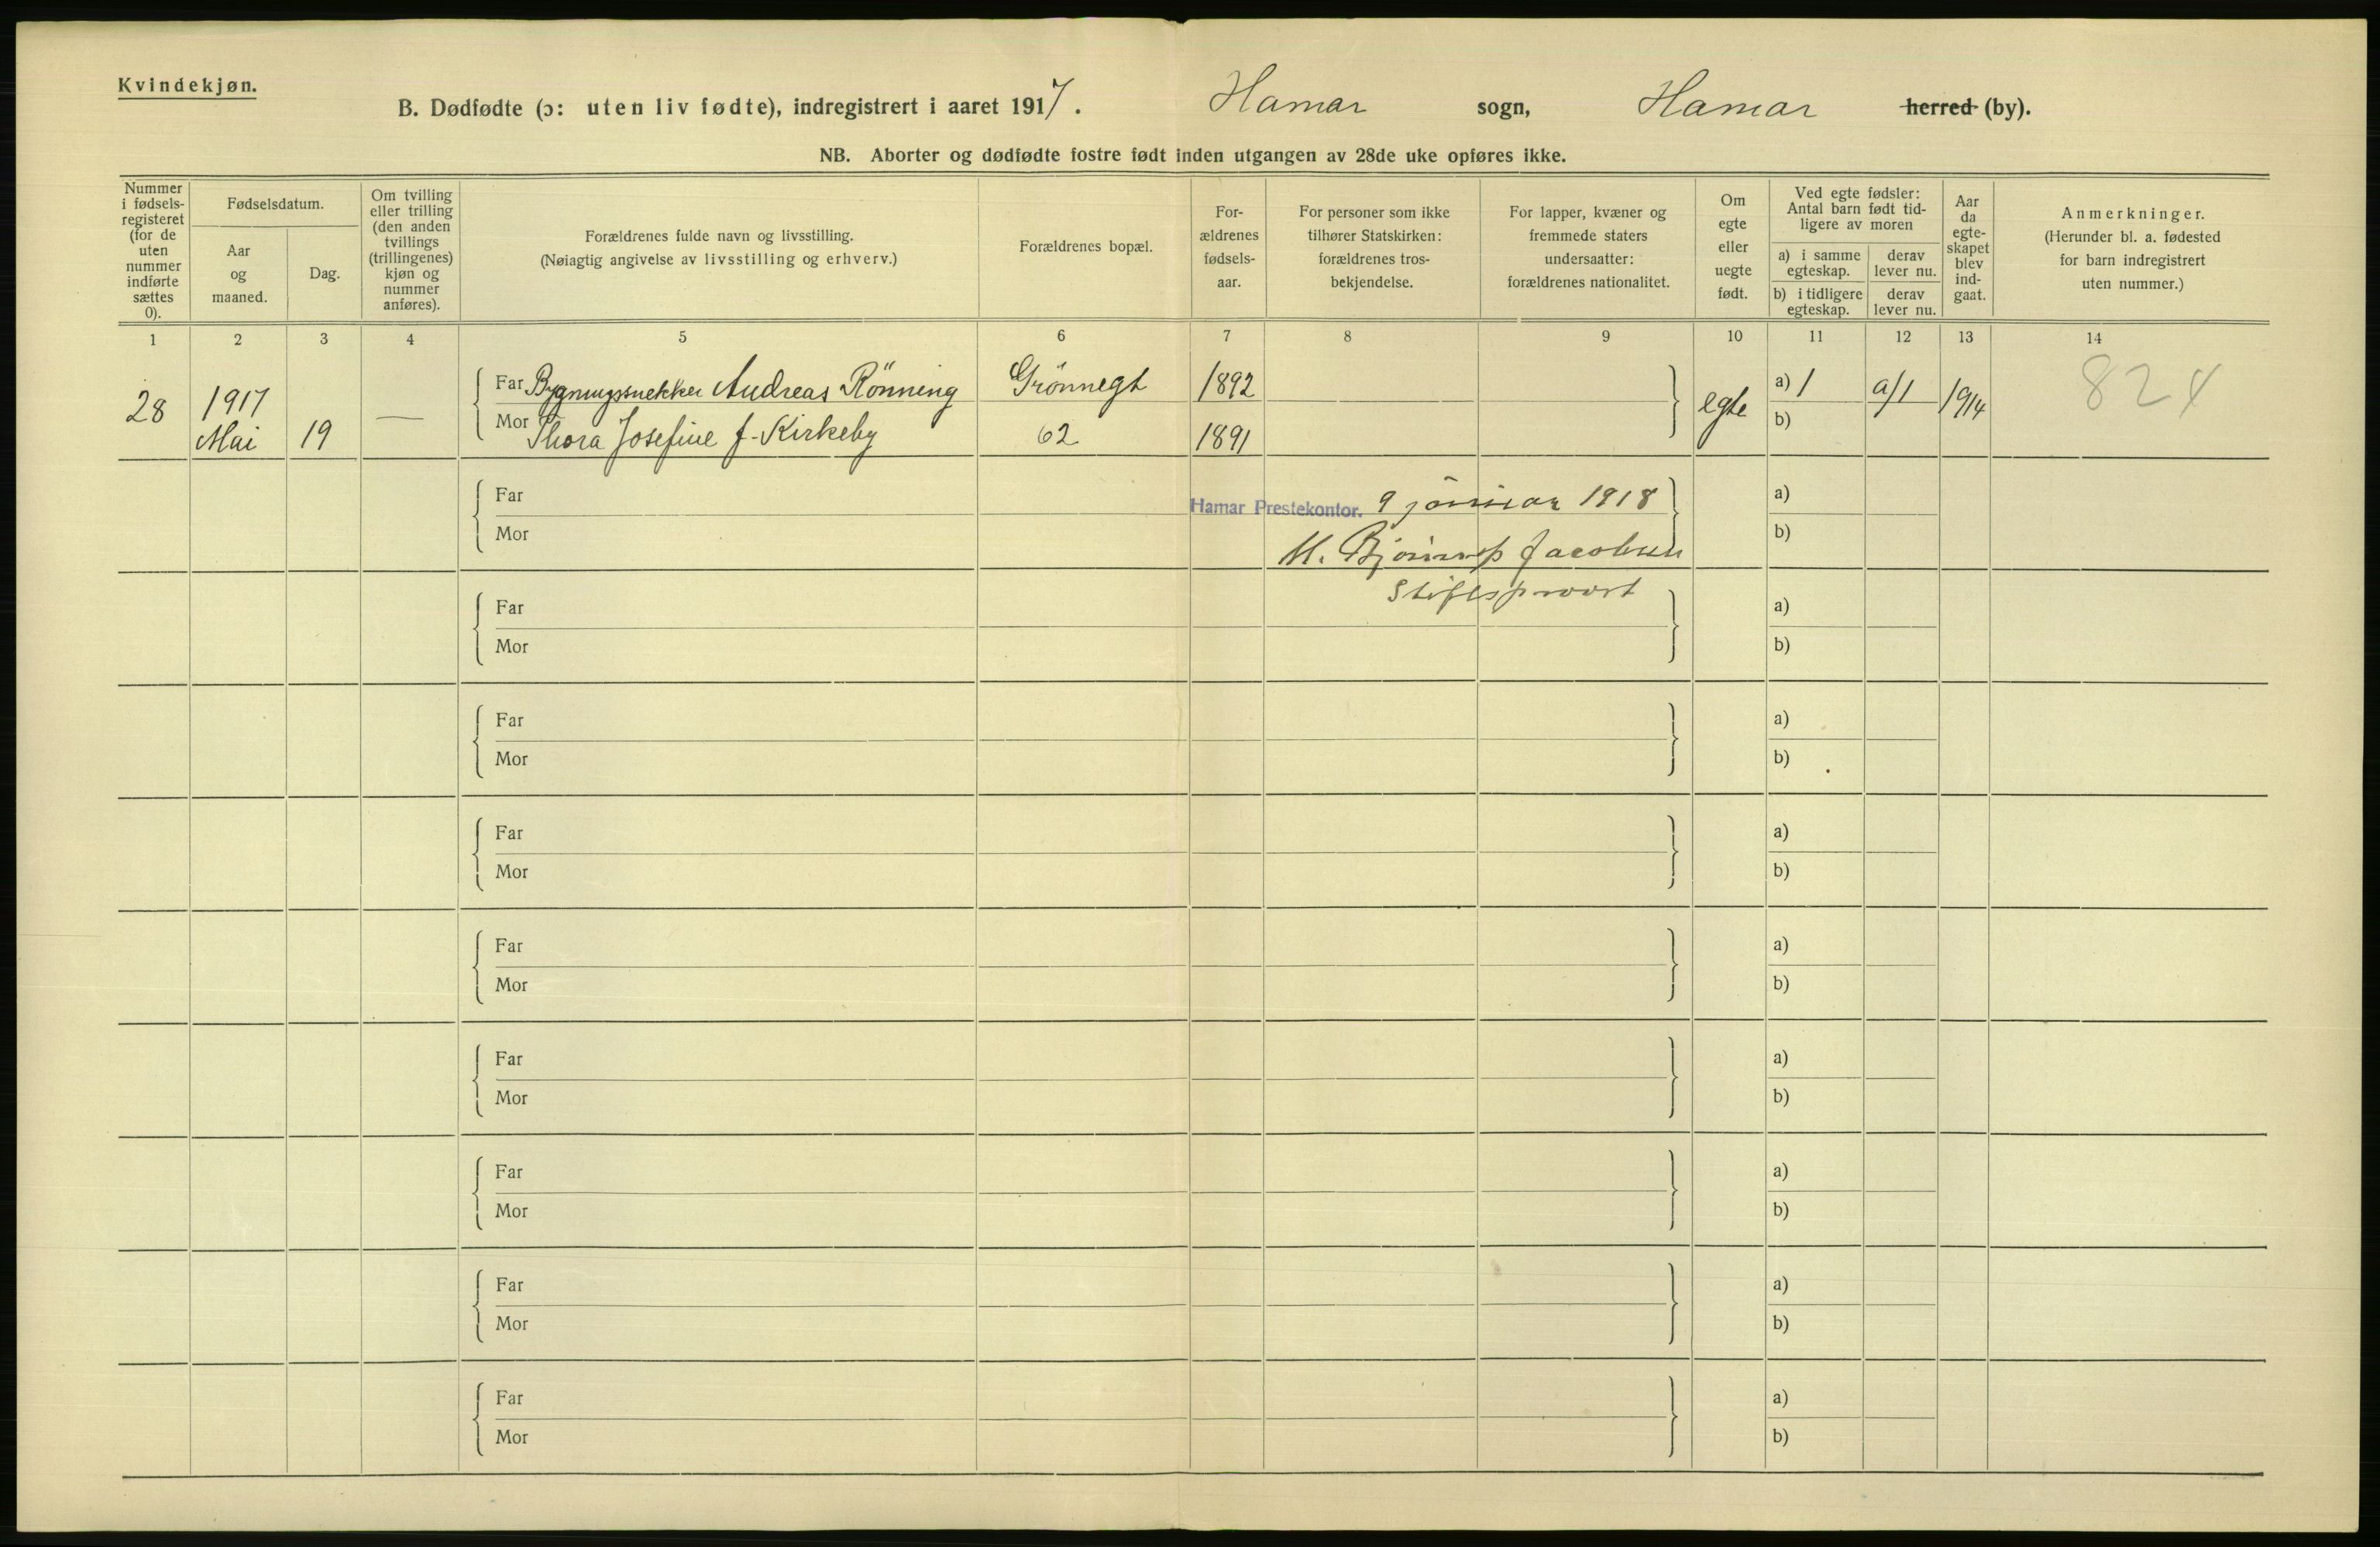 Kvindekjøn.
B. Dødfødte (ɔ: uten liv fødte), indregistrert i aaret 1917. Hamar sogn, Hamar herred (by).
NB. Aborter og dødfødte fostre født inden utgangen av 28de uke opføres ikke.
Nummer i fødselsregisteret (for de uten nummer indførte sættes 0).
Fødselsdatum.
Aar og maaned.
Dag.
Om tvilling eller trilling (den anden tvillings (trillingenes) kjøn og nummer anføres).
Forældrenes fulde navn og livsstilling.
(Nøiagtig angivelse av livsstilling og erhverv.)
Forældrenes bopæl.
For-ældrenes fødsels-aar.
For personer som ikke tilhører Statskirken: forældrenes tros-bekjendelse.
For lapper, kvæner og fremmede staters undersaatter: forældrenes nationalitet.
Om egte eller uegte født.
Ved egte fødsler: Antal barn født tid-ligere av moren
a) i samme egteskap.
derav lever nu.
b) i tidligere egteskap.
derav lever nu.
Aar da egte-skapet blev ind-gaat.
Anmerkninger.
(Herunder bl. a. fødested for barn indregistrert uten nummer.)
1 2 3 4 5 6 7 8 9 10 11 12 13 14
28 1917 Mai 19 —
Far Bygningssnekker Andreas Rönning Grönnegt 1892 egte a) 1 a/1 1914 824
Mor Thora Josefine f. Kirkeby 62 1891 b)
Far Hamar Prestekontor. 9 januar 1918 a)
Mor Jacobsen b)
Stiftsprovst
Far a)
Mor b)
Far a)
Mor b)
Far a)
Mor b)
Far a)
Mor b)
Far a)
Mor b)
Far a)
Mor b)
Far a)
Mor b)
Far a)
Mor b)